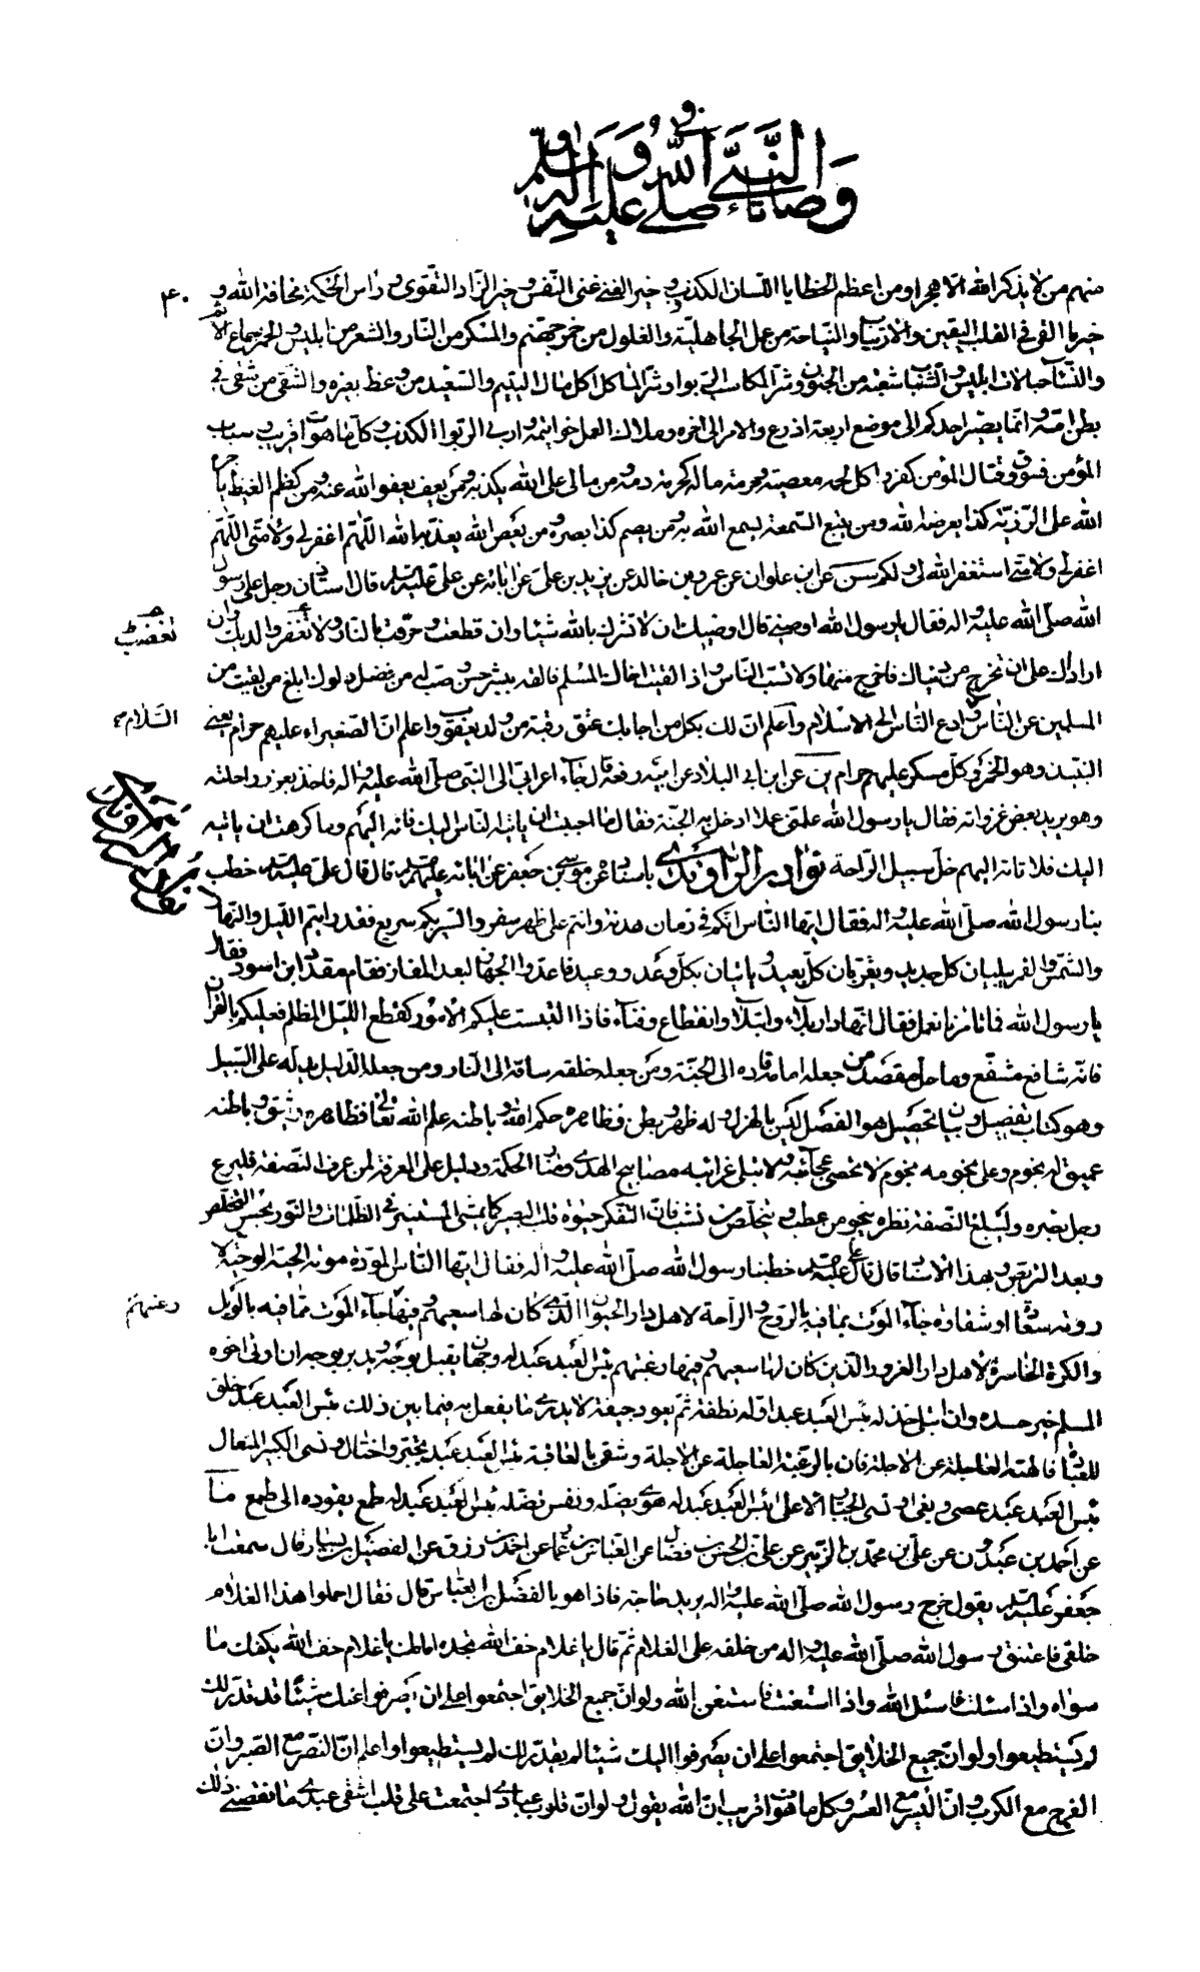 في وصايا النبي صلى الله عليه وآله وسلم
٤٠
منهم من لا يذكر الله الا هجرا ومن اعظم الخطايا اللسان الكذوب وخير الغنى غنى النفس وخير الزاد التقوى وراس الحكمة مخافة الله و
خير ما القي في القلب اليقين والارتياب والنياحة من عمل الجاهلية والغلول من جمر جهنم والمسكر من النار والشعر من ابليس والخمر جماع الاثم
والنساء حبالات ابليس والشباب شعبة من الجنون وشر المكاسب الربوا وشر الماكل اكل مال اليتيم والسعيد من وعظ بغيره والشقي من شقي في
بطن امه وانما يصير احدكم الى موضع اربعة اذرع والامر الى اخره وملاك العمل خواتيمه واربى الربوا الكذب وكل ما هو ات قريب وسباب
المؤمن فسوق وقتال المؤمن كفر واكل لحمه معصية وحرمة ماله كحرمة دمه ومن يتالى على الله يكذبه ومن يعف يعفو الله عنه ومن كظم الغيظ ياجره
الله على الرزية كذا يعرضه الله ومن يتبع السمعة يسمع الله به ومن يصم كذا بصره ومن يعص الله يعذبه الله اللهم اغفر لي ولامتي اللهم
اغفر لي ولامتي استغفر الله لي ولكم سن عن ابن علوان عن عمرو بن خالد عن زيد بن علي عن ابائه عن علي عليه السلام قال استاذن رجل على رسول
الله صلى الله عليه واله فقال يا رسول الله اوصني قال اوصيك ان لا تشرك بالله شيئا وان قطعت وحرقت بالنار ولا تنهر والديك وان
تغضب
ارادك على ان تخرج من دنياك فاخرج منها ولا تسب الناس واذا لقيت اخاك المسلم فالقه ببشر حسن وصب له من فضل دلوك ابلغ من لقيت من
المسلمين عن الناس وادع الناس الى الاسلام واعلم ان لك بكل من اجابك عتق رقبة من ولد يعقوب واعلم ان الصغيراء عليهم حرام يعني
السلام
النبيذ وهو الخمر وكل مسكر عليهم حرام ين عن ابن ابي البلاد عن ابيه رفعه قال جاء اعرابي الى النبي صلى الله عليه واله فاخذ بغرز راحلته
وهو يريد بعض غزواته فقال يا رسول الله علمني عملا ادخل به الجنة فقال ما احببت ان ياتيه الناس اليك فاته اليهم وما كرهت ان ياتيه
اليك فلا تاته اليهم خل سبيل الراحلة نوادر الراوندي باسناده عن موسى بن جعفر عن ابائه عليهم السلام قال قال علي عليه السلام خطب
بنا رسول الله صلى الله عليه واله فقال ايها الناس انكم في زمان هدنة وانتم على ظهر سفر والسير بكم سريع فقد رايتم الليل والنهار
والشمس والقمر يبليان كل جديد ويقربان كل بعيد وياتيان بكل وعد ووعيد فاعدوا الجهاز لبعد المفاز فقام مقداد بن اسود فقال
يا رسول الله فما تامرنا نعمل فقال انها دار بلاء وابتلاء وانقطاع وفناء فاذا التبست عليكم الامور كقطع الليل المظلم فعليكم بالقران
فانه شافع مشفع وماحل مصدق من جعله امامه قاده الى الجنة ومن جعله خلفه ساقه الى النار ومن جعله الدليل يدله على السبيل
وهو كتاب تفصيل وبيان تحصيل هو الفصل ليس بالهزل وله ظهر وبطن فظاهره حكم الله وباطنه علم الله تعالى فظاهره وثيق وباطنه
عميق له نجوم وعلى نجومه نجوم لا تحصى عجائبه ولا تبلى غرائبه مصابيح الهدى ومنار الحكمة ودليل على المعرفة لمن عرف النصفة فليرع
رجل بصره وليبلغ النصفة نظره ينجو من عطب ويتخلص من نشب فان التفكر حيوة قلب البصير كما يمشي المستنير في الظلمات والنور بحسن التخلص
ويعد التربص وبهذا الاسناد قال قال علي عليه السلام خطبنا رسول الله صلى الله عليه واله فقال ايها الناس الموتة موته الجنة الوحية لا
ردة سعادة او شقاوة جاء الموت بما فيه بالروح والراحة لاهل دار الحيوان الذي كان لها سعيهم وفيها جاء الموت بما فيه بالويل
رغبتهم
والكرة الخاسرة لاهل دار الغرور الذين كان لها سعيهم وفيها رغبتهم بئس العبد عبد له وجهان يقبل بوجه ويدبر بوجه ان اوتي اخوه
المسلم خير حسده وان ابتلى خذله بئس العبد عبد اوله نطفة ثم يعود جيفة لا يدري ما يفعل به فيما بين ذلك بئس العبد عبد خلق
للعبادة فالهته العاجلة عن الاجلة فان بالرغبة العاجلة عن الاجلة وشقي بالعاقبة بئس العبد عبد تجبر واختال ونسي الكبير المتعال
بئس العبد عبد عصى وبغى ونسي الجبار الاعلى بئس العبد عبد له هوى يضله ونفس تضله بئس العبد عبد له طمع يقوده الى طمع ما
عن احمد بن عبدون عن علي بن محمد بن الزبير عن علي بن الحسن بن فضال عن العباس بن عامر عن احمد بن رزق عن الفضيل بن يسار قال سمعت ابا
جعفر عليه السلام يقول خرج رسول الله صلى الله عليه واله يريد حاجة فاذا هو بالفضل بن العباس قال فقال احملوا هذا الغلام
خلفي فاعتنق رسول الله صلى الله عليه واله من خلفه على الغلام ثم قال يا غلام خف الله تجده امامك يا غلام خف الله يكفك ما
سواه واذا سئلت فاسئل الله واذا استعنت فاستعن بالله ولو ان جميع الخلايق اجتمعوا على ان يصرفوا عنك شيئا قد قدر لك
لم يستطيعوا ولو ان جميع الخلايق اجتمعوا على ان يصرفوا اليك شيئا لم يقدر لك لم يستطيعوا واعلم ان النصر مع الصبر وان
الفرج مع الكرب وان اليسر مع العسر وكل ما هو ات قريب ان الله يقول ولو ان قلوب عبادي اجتمعت على قلب اشقى عبد لي ما نقصني ذلك